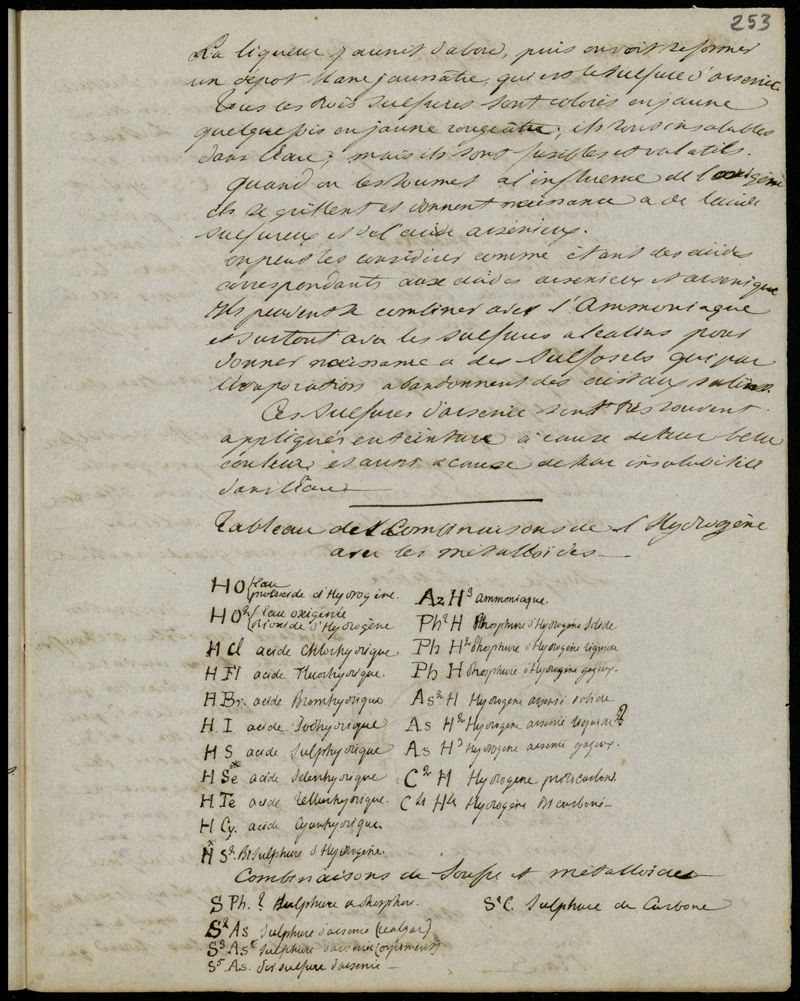 253
La liqueur jaunit d'abord, puis on voit se former
un depot blanc jaunatre, qui est le sulfure d'arsenic.
Tous ces trois sulfures sont colorés en jaune
quelquefois en jaune rougeatre; ils sont insolubles
dans l'eau; mais ils sont fusibles et volatils.
Quand on les soumet a l'influence de l'oxigène
ils se grillent et donnent naissance a de l'acide
sulfureux et de l'acide arsénieux.
on peut les considérer comme étant des acides
correspondants aux acides arsenieux et arsenique
Ils peuvent se combiner avec l'Ammoniaque
et surtout avec les sulfures alcalins pour
donner naissance a des sulfosels qui par
l'évaporation abandonnent des cristaux salins.
Ces sulfures d'arsenic sont très souvent
appliqués en teinture à cause de leur belle
couleur et aussi a cause de leur insolubilité
dans l'eau
Tableau des Combinaisons de l'Hydrogène
avec les métalloïdes
HO { Eau protoxide d'Hydrogène.
HO² { Eau oxigénée Bioxide d'Hydrogène
H Cl acide Chlorhydrique
H Fl acide Fluorhydrique.
H Br. acide Bromhydrique
H I acide Iodhydrique
H S acide Sulphydrique
H Se acide Selenhydrique
H Te acide Tellurhydrique.
H Cy. acide Cyanhydrique.
H S². Bisulphure d'Hydrogène.
Az H³ ammoniaque.
Ph² H Phosphure d'Hydrogène Solide
Ph H² Phosphure d'Hydrogène liquide
Ph H Phosphure d'Hydrogène gazeux.
As² H Hydrogène arsenié solide
As H² Hydrogène arsenié liquide ?
As H³ Hydrogène arsenié gazeux.
C² H Hydrogène protocarboné
C⁴ H⁴ Hydrogène Bicarboné
Combinaisons de Soufre et métalloides
S Ph. ? Sulphure de Phosphore.
S² As Sulphure d'arsenic (realgar)
S³ As Sulphure d'arsenic (orpiment)
S⁵ As. sulfure d'arsenic
S² C. Sulphure de Carbone